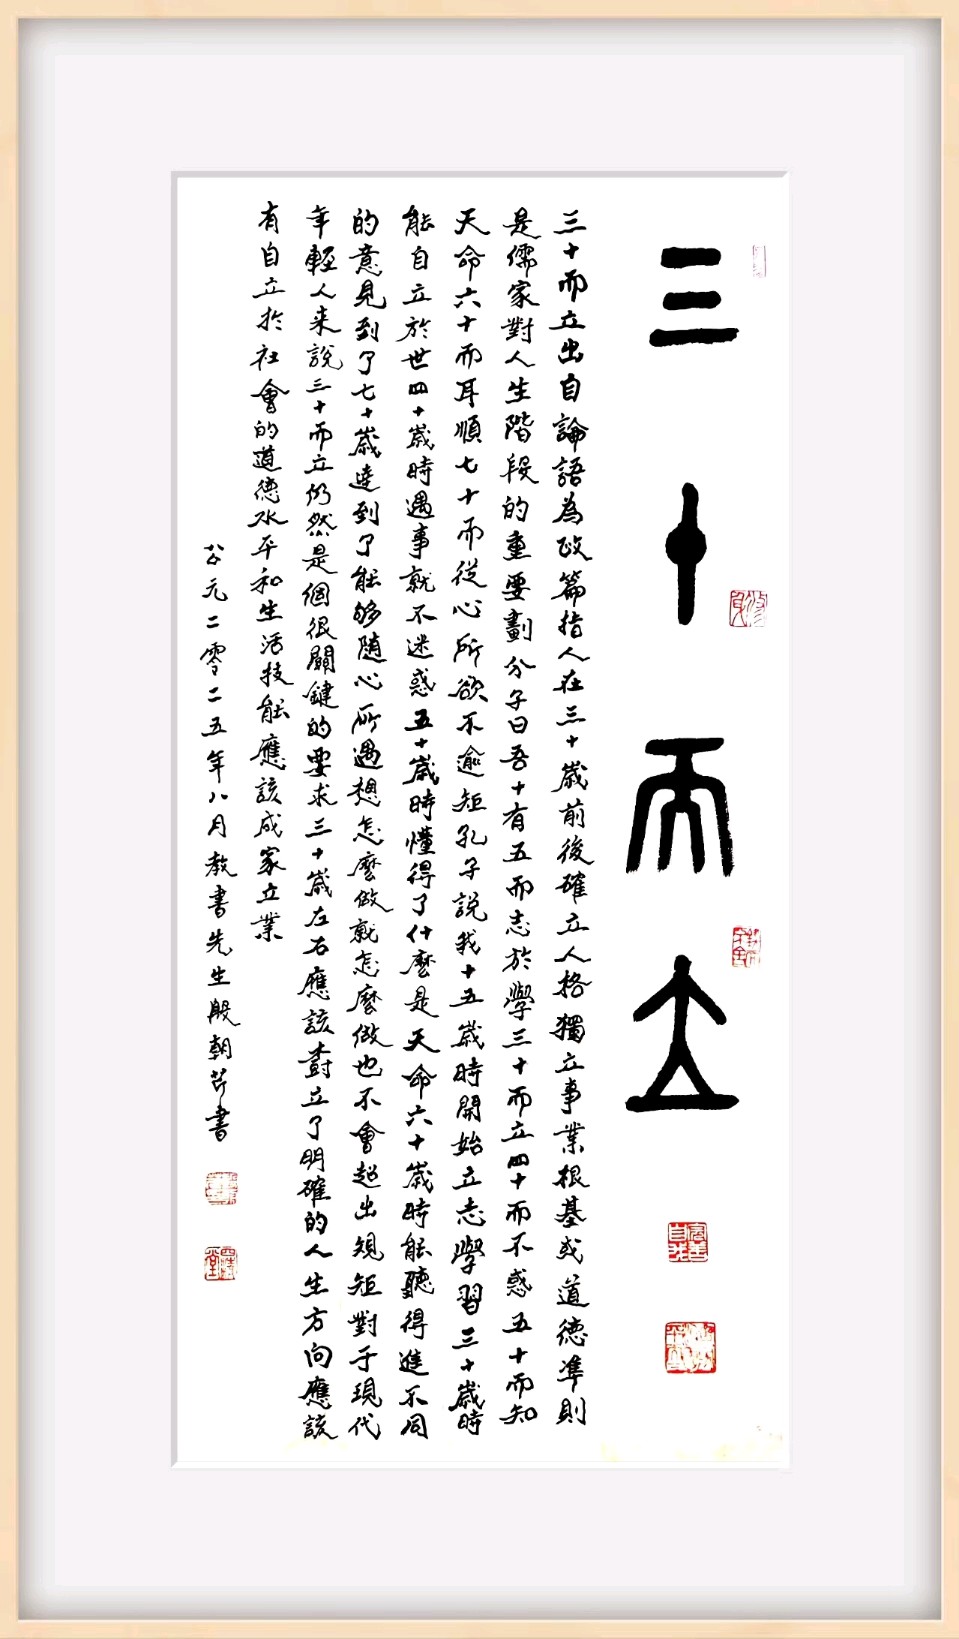 三十而立
三十而立出自論語為政篇指人在三十歲前後確立人格獨立事業根基或道德準則
是儒家對人生階段的重要劃分子曰吾十有五而志於學三十而立四十而不惑五十而知
天命六十而耳順七十而從心所欲不逾矩孔子説我十五歲時開始立志學習三十歲時
能自立於世四十歲時遇事就不迷惑五十歲時懂得了什麼是天命六十歲時能聽得進不同
的意見到了七十歲達到了能够隨心所遇想怎麼做就怎麼做也不會超出規矩對于現代
年輕人来説三十而立仍然是個很關鍵的要求三十歲左右應該對立了明確的人生方向應該
有自立於社會的道德水平和生活技能應該成家立業
公元二零二五年八月教書先生殷朝芹書